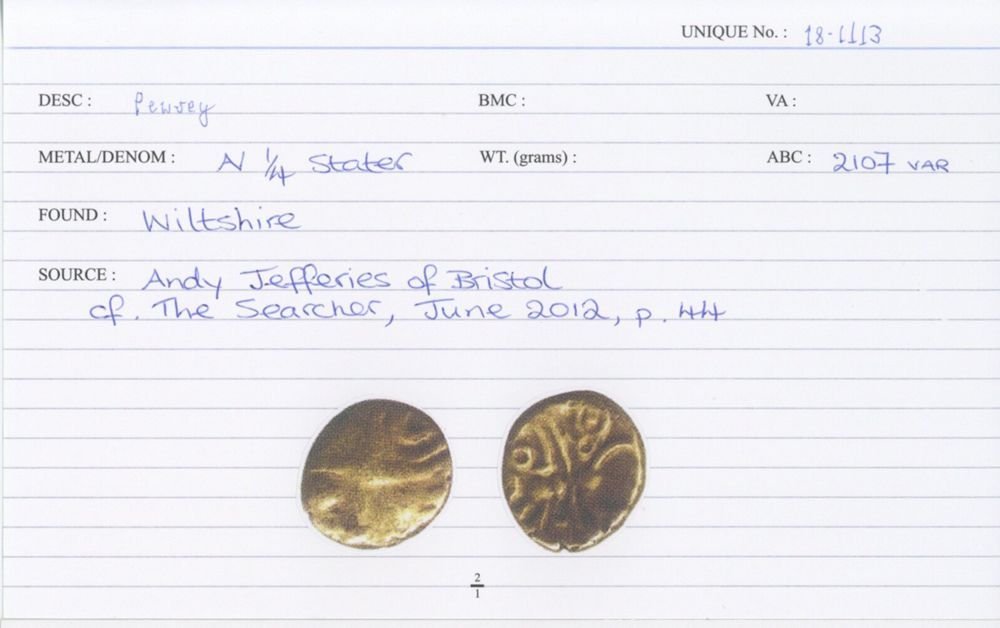 UNIQUE No. : 18-1113
DESC : Pewsey BMC : VA :
METAL/DENOM : N 1/4 Stater WT. (grams) : ABC : 2107 VAR
FOUND : Wiltshire
SOURCE : Andy Jefferies of Bristol
cf. The Searcher, June 2012, p. 44
2
1